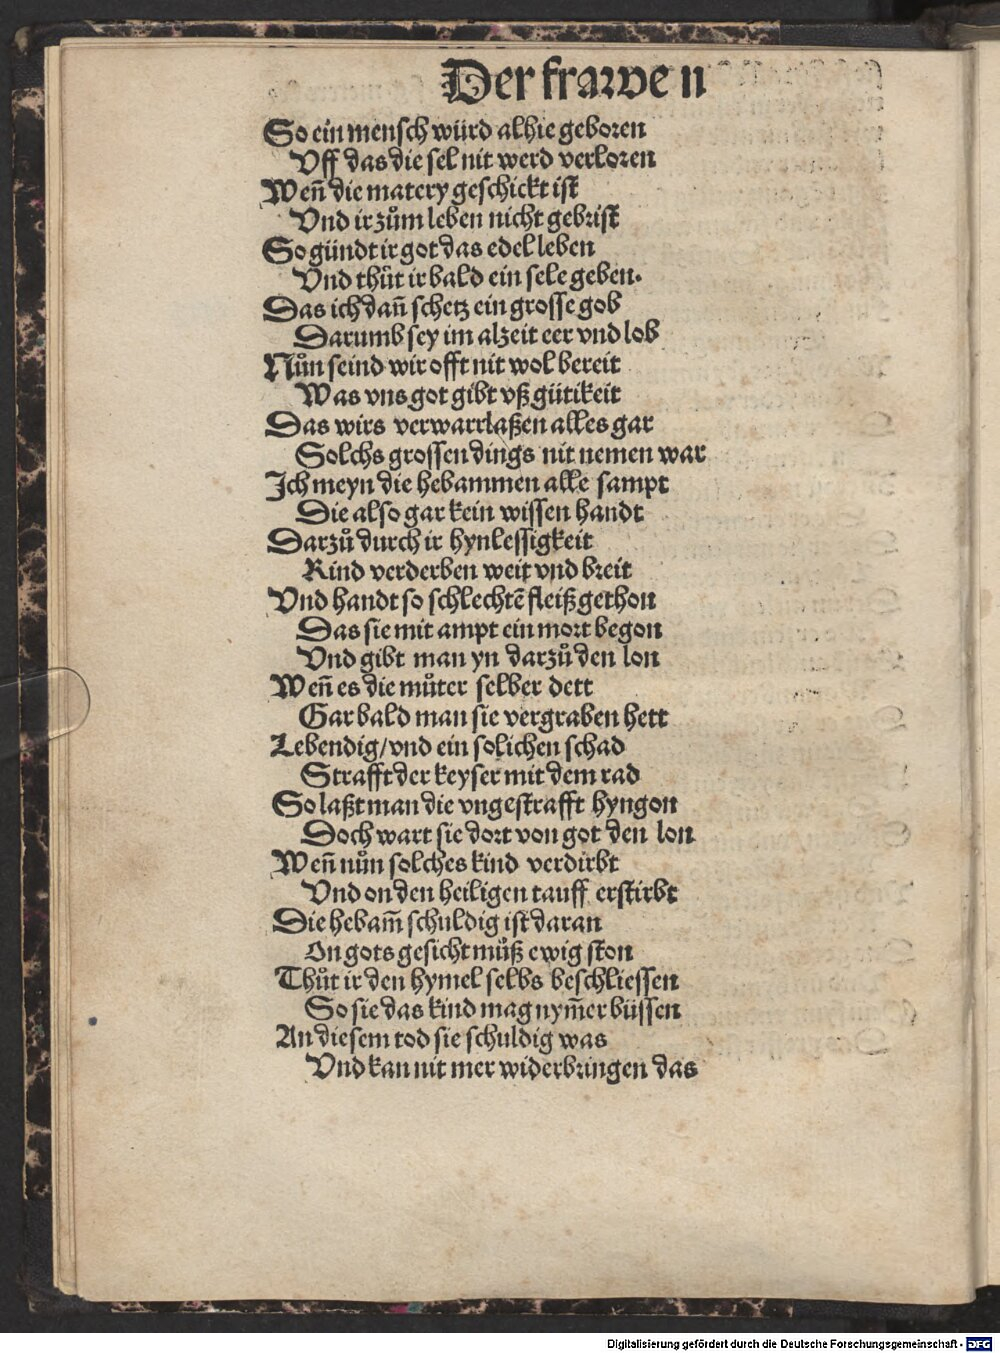 Der frawen
So ein mensch würd alhie geboren
Vff das die sel nit werd verloren
Weñ die matery geschickt ist
Vnd ir zům leben nicht gebrist
So gündt ir got das edel leben
Vnd thůt ir bald ein sele geben.
Das ich dañ schetz ein grosse gob
Darumb sey im alzeit eer vnd lob
Nůn seind wir offt nit wol bereit
Was vns got gibt vß gütikeit
Das wirs verwarrlaßen alles gar
Solchs grossen dings nit nemen war
Ich meyn die hebammen alle sampt
Die also gar kein wissen handt
Darzů durch ir hynlessigkeit
Kind verderben weit vnd breit
Vnd handt so schlechtē fleiß gethon
Das sie mit ampt ein mort begon
Vnd gibt man yn darzů den lon
Weñ es die můter selber dett
Gar bald man sie vergraben hett
Lebendig/vnd ein solichen schad
Strafft der keyser mit dem rad
So laßt man die vngestrafft hyngon
Doch wart sie dort von got den lon
Weñ nůn solches kind verdirbt
Vnd on den heiligen tauff erstirbt
Die hebam̃ schuldig ist daran
On gots gesicht můß ewig ston
Thůt ir den hymel selbs beschliessen
So sie das kind mag nym̃er büssen
An diesem tod sie schuldig was
Vnd kan nit mer widerbringen das
Digitalisierung gefördert durch die Deutsche Forschungsgemeinschaft - DFG